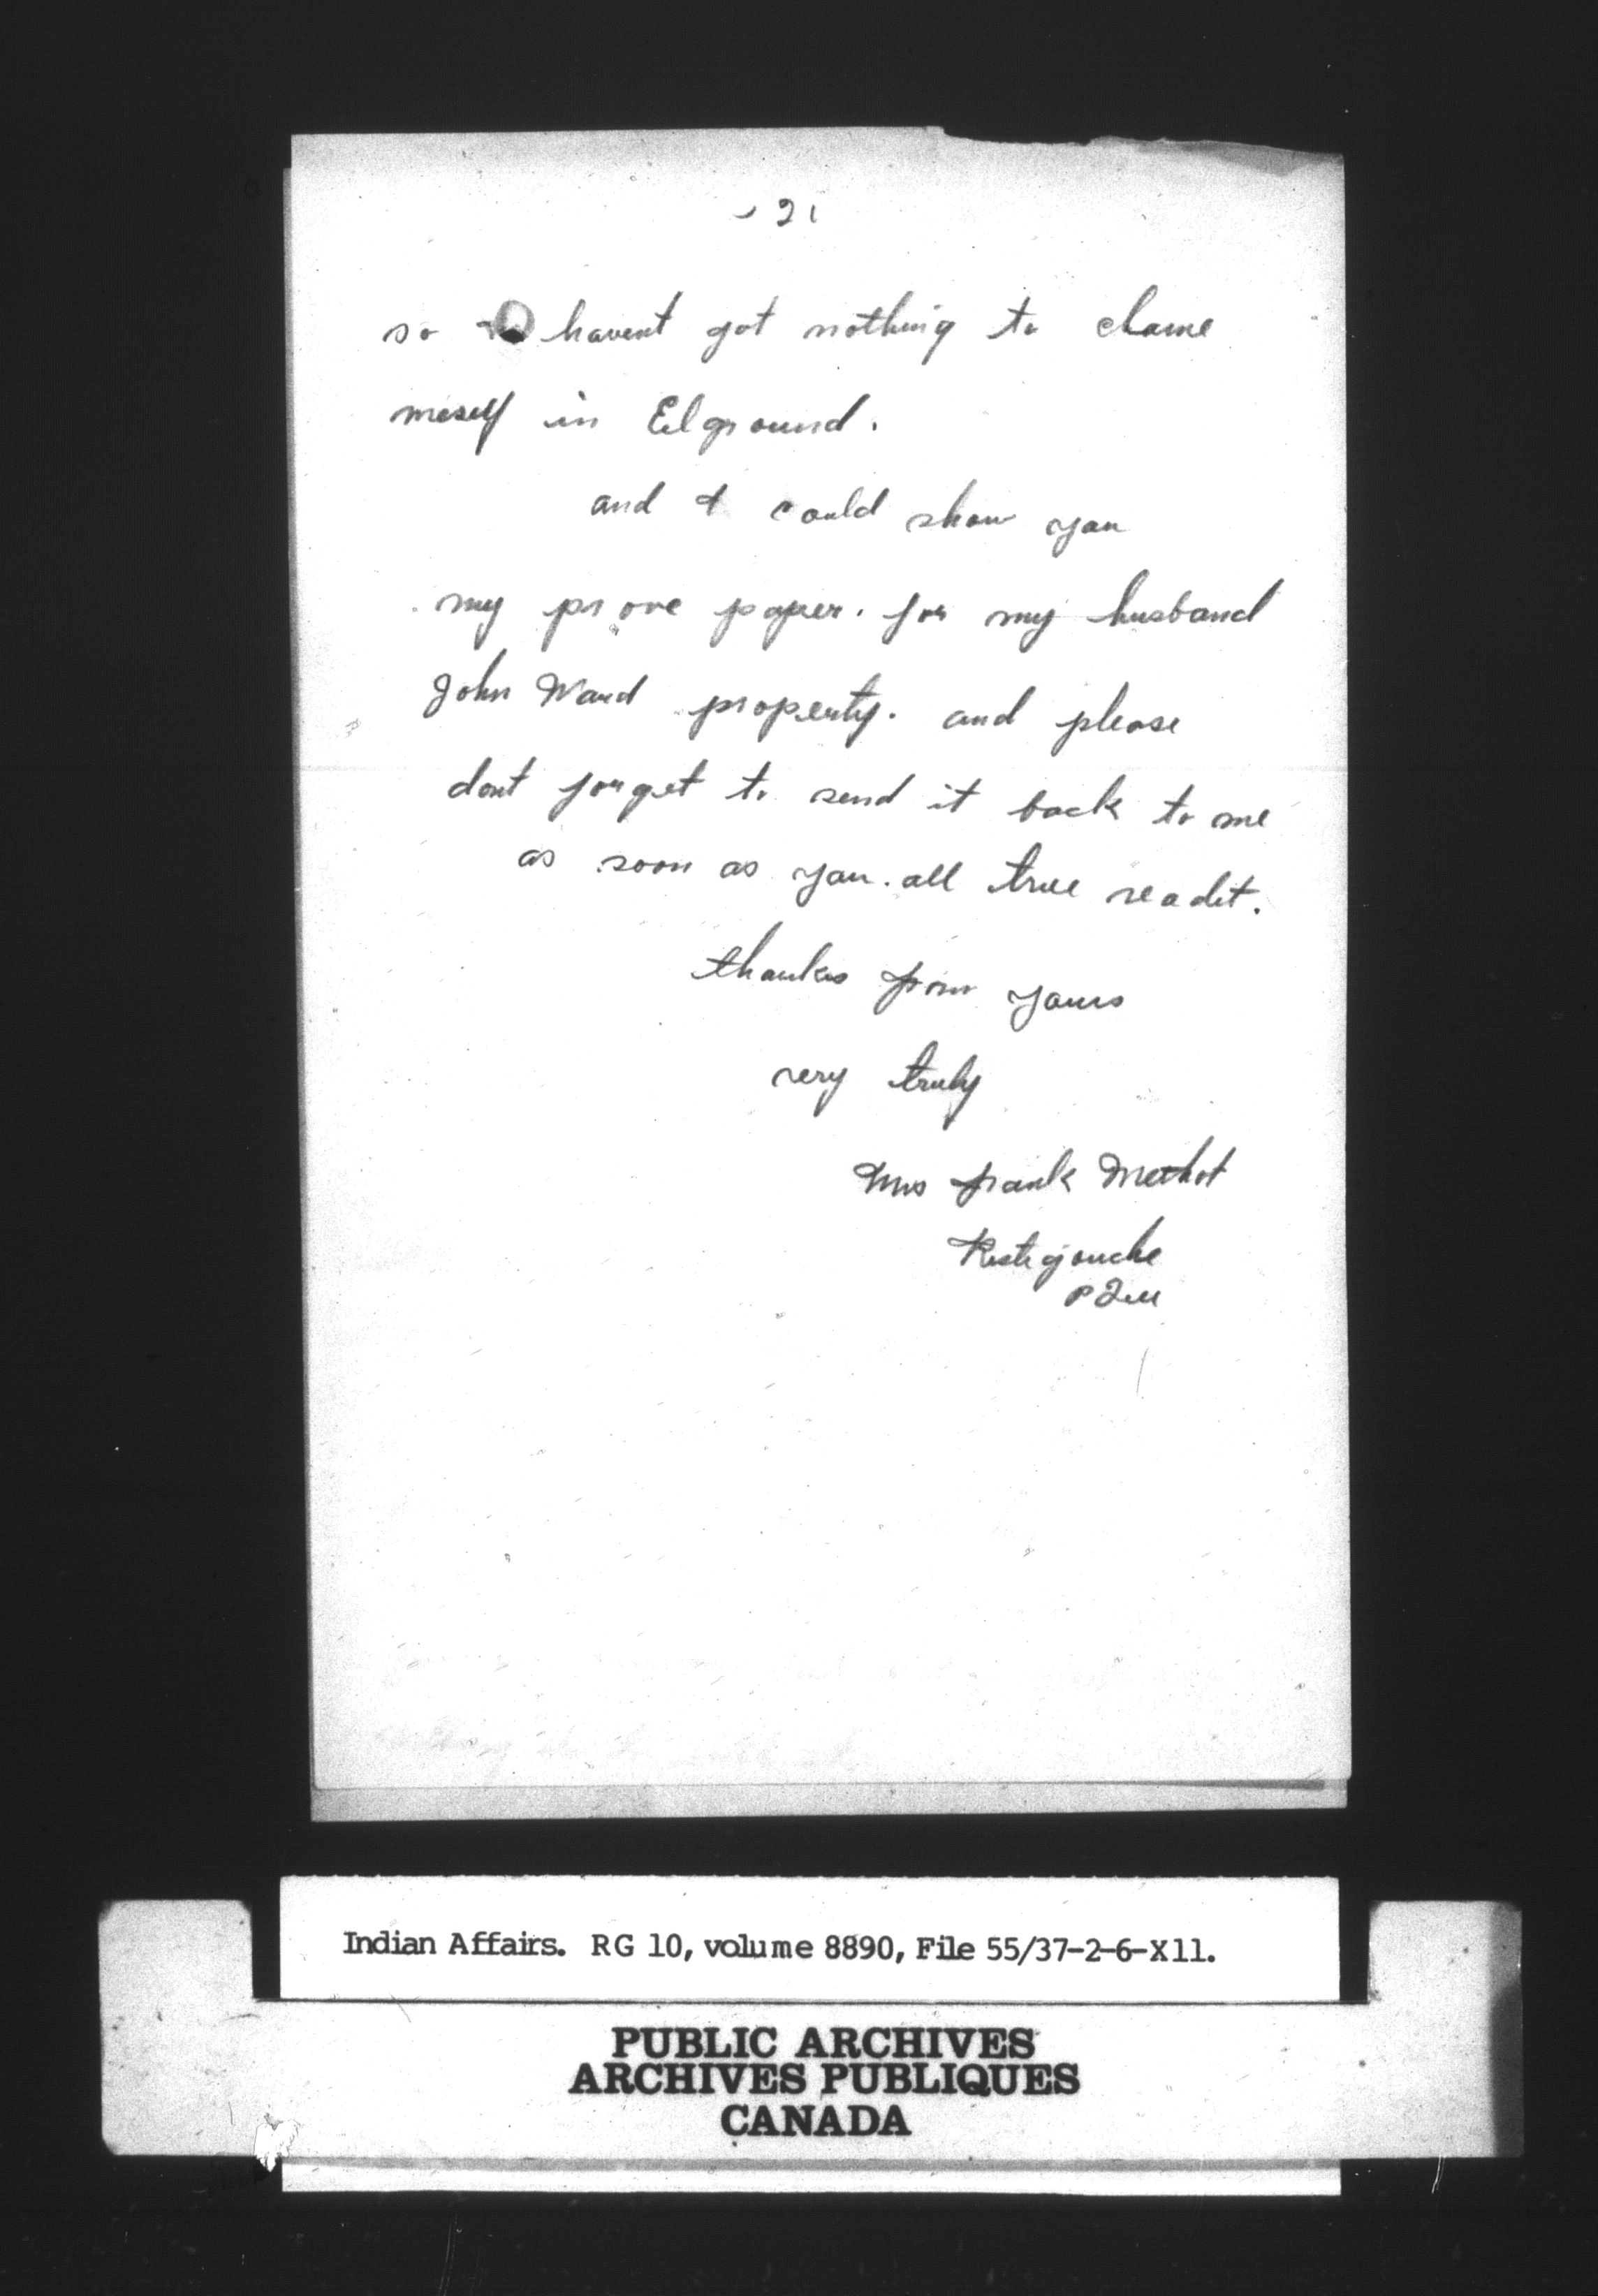 -2-
so havent got nothing to clame
meself in Eelground.
and I could show you
my prove paper. for my husband
John Ward property. and please
dont forget to send it back to me
as soon as you. all true readit.
thanks from yours
very truly
Mrs frank Methot
Restigouche
P Que
Indian Affairs. RG 10, volume 8890, File 55/37-2-6-X11.
PUBLIC ARCHIVES
ARCHIVES PUBLIQUES
CANADA